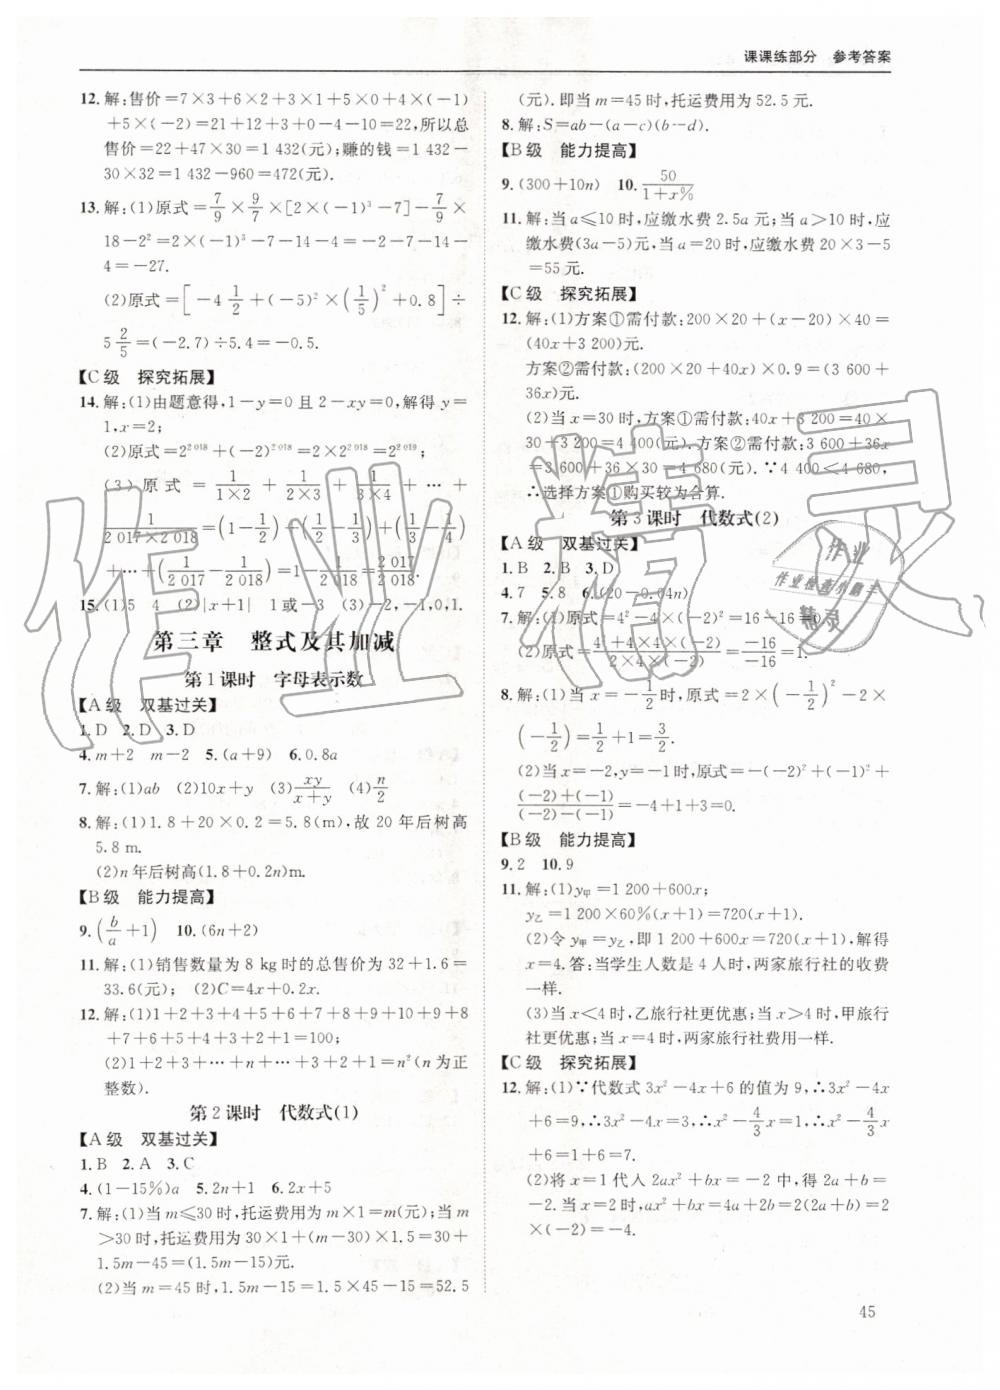 课课练部分 参考答案
12.解:售价=7×3+6×2+3×1+5×0+4×(-1)
+5×(-2)=21+12+3+0-4-10=22,所以总
售价=22+47×30=1 432(元);赚的钱=1 432-
30×32=1 432-960=472(元).
13.解:(1)原式=7/9×9/7×[2×(-1)³-7]-7/9×
18-2²=2×(-1)³-7-14-4=-2-7-14-
4=-27.
(2)原式=[-4 1/2+(-5)²×(1/5)²+0.8]÷
5 2/5=(-2.7)÷5.4=-0.5.
【C级 探究拓展】
14.解:(1)由题意得,1-y=0且2-x=0,解得y=
1,x=2;
(2)原式=2²⁰¹⁸+2²⁰¹⁸=2×2²⁰¹⁸=2²⁰¹⁹;
(3)原式=1/(1×2)+1/(2×3)+1/(3×4)+…+
1/(2 017×2 018)=(1-1/2)+(1/2-1/3)+(1/3-1/4)
+…+(1/2 017-1/2 018)=1-1/2 018=2 017/2 018.
15.(1)5 4 (2)|x+1| 1或-3 (3)-2,-1,0,1.
第三章 整式及其加减
第1课时 字母表示数
【A级 双基过关】
1.D 2.D 3.D
4.m+2 m-2 5.(a+9) 6.0.8a
7.解:(1)ab (2)10x+y (3)xy/(x+y) (4)n/2
8.解:(1)1.8+20×0.2=5.8(m),故20年后树高
5.8 m.
(2)n年后树高(1.8+0.2n)m.
【B级 能力提高】
9.(b/a+1) 10.(6n+2)
11.解:(1)销售数量为8 kg时的总售价为32+1.6=
33.6(元); (2)C=4x+0.2x.
12.解:(1)1+2+3+4+5+6+7+8+9+10+9+8
+7+6+5+4+3+2+1=100;
(2)1+2+3+…+n+…+3+2+1=n²(n为正
整数).
第2课时 代数式(1)
【A级 双基过关】
1.B 2.A 3.C
4.(1-15%)a 5.2n+1 6.2x+5
7.解:(1)当m≤30时,托运费用为m×1=m(元);当m
>30时,托运费用为30×1+(m-30)×1.5=30+
1.5m-45=(1.5m-15)元.
(2)当m=45时,1.5m-15=1.5×45-15=52.5
(元).即当m=45时,托运费用为52.5元.
8.解:S=ab-(a-c)(b-d).
【B级 能力提高】
9.(300+10n) 10.50/(1+x%)
11.解:当a≤10时,应缴水费2.5a元;当a>10时,应
缴水费(3a-5)元,当a=20时,应缴水费20×3-5
=55元.
【C级 探究拓展】
12.解:(1)方案①需付款:200×20+(x-20)×40=
(40x+3 200)元.
方案②需付款:(200×20+40x)×0.9=(3 600+
36x)元.
(2)当x=30时,方案①需付款:40x+3 200=40×
30+3 200=4 400(元).方案②需付款:3 600+36x
=3 600+36×30=4 680(元).∵4 400<4 680,
∴选择方案①购买较为合算.
第3课时 代数式(2)
【A级 双基过关】
1.B 2.B 3.D
4.7 5.8 6.(20-0.04n)
7.解:(1)原式=4²-4×(-2)²=16-16=0.
(2)原式=(4+4×4×(-2))/(4×4×(-2)+4×4)... =-16/-16=1.
8.解:(1)当x=-1/2时,原式=2×(-1/2)²-2×
(-1/2)=1/2+1=3/2.
(2)当x=-2,y=-1时,原式=-(-2)²+(-1)²+
((-2)+(-1))/((-2)-(-1))=-4+1+3=0.
【B级 能力提高】
9.2 10.9
11.解:(1)y甲=1 200+600x;
y乙=1 200×60%(x+1)=720(x+1).
(2)令y甲=y乙,即1 200+600x=720(x+1),解得
x=4.答:当学生人数是4人时,两家旅行社的收费
一样.
(3)当x<4时,乙旅行社更优惠;当x>4时,甲旅行
社更优惠;当x=4时,两家旅行社费用一样.
【C级 探究拓展】
12.解:(1)∵代数式3x²-4x+6的值为9,∴3x²-4x
+6=9,∴3x²-4x=3,∴x²-4/3x=1,∴x²-4/3x
+6=1+6=7.
(2)将x=1代入ax²+bx=-2中,得2a+b=
-2.当x=2时,ax²+bx=4a+2b=2(2a+b)=2
×(-2)=-4.
45
作业精灵
作业
作业检查小帮手
精灵